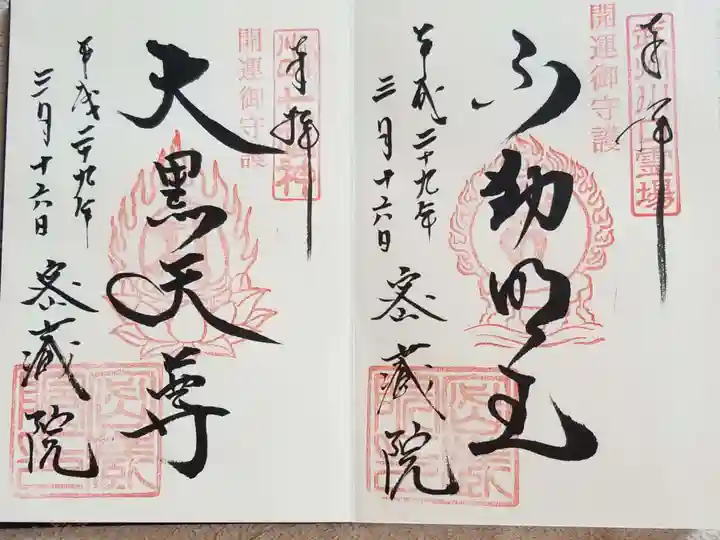 奉拝
開運御守護
不動明王
平成二十九年
三月十六日
密蔵院
奉拝
開運御守護
大黒天尊
平成二十九年
三月十六日
密蔵院